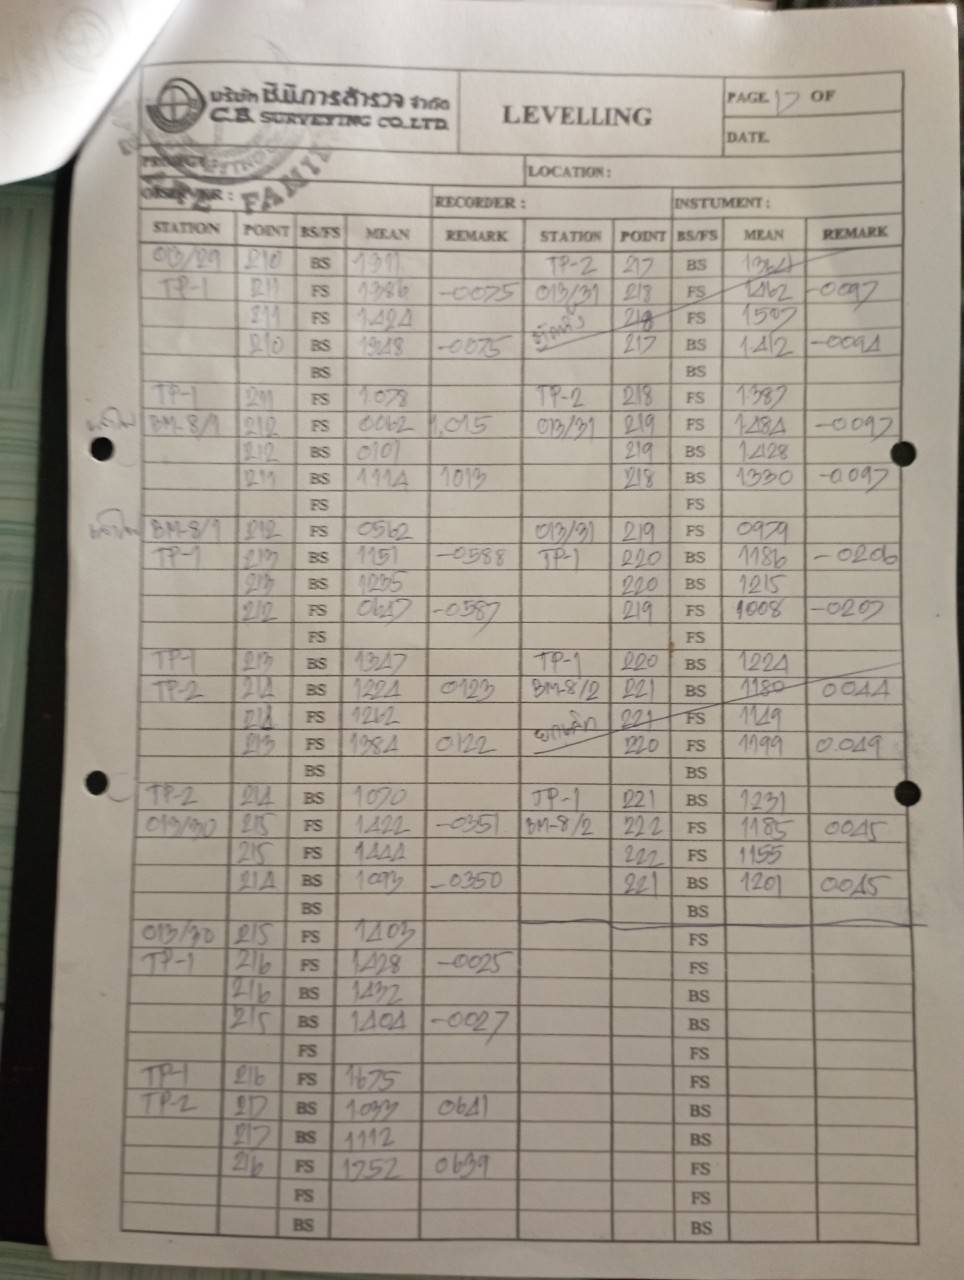 บริษัท ซีบีการสำรวจ จำกัด
C.B. SURVEYING CO.,LTD.
LEVELLING
PAGE 17 OF
DATE.
LOCATION :
RECORDER :
INSTUMENT :
STATION POINT BS/FS MEAN REMARK STATION POINT BS/FS MEAN REMARK
013/29 210 BS 1311 TP-2 217 BS 1364
TP-1 211 FS 1386 -0075 013/31 218 FS 1462 -0097
211 FS 1424 218 FS 1507
210 BS 1348 -0075 217 BS 1412 -0094
BS BS
TP-1 211 FS 1.078 TP-2 218 FS 1387
BM-8/1 212 FS 0062 1.015 013/31 219 FS 1484 -0097
212 BS 0101 219 BS 1428
211 BS 1114 1013 218 BS 1330 -0.097
FS FS
BM-8/1 212 FS 0562 013/31 219 FS 0979
TP-1 213 BS 1151 -0588 TP-1 220 BS 1186 -0206
213 BS 1235 220 BS 1215
212 FS 0647 -0587 219 FS 1008 -0207
FS FS
TP-1 213 BS 1347 TP-1 220 BS 1224
TP-2 214 BS 1224 0123 BM-8/2 221 BS 1180 0044
214 FS 1262 ยกเลิก 221 FS 1149
213 FS 1384 0.122 220 FS 1199 0.049
BS BS
TP-2 214 BS 1070 TP-1 221 BS 1231
013/30 215 FS 1422 -0351 BM-8/2 222 FS 1185 0045
215 FS 1444 222 FS 1155
214 BS 1093 -0350 221 BS 1201 0045
BS BS
013/30 215 FS 1403 FS
TP-1 216 FS 1428 -0025 FS
216 BS 1432 BS
215 BS 1404 -0027 BS
FS FS
TP-1 216 FS 1675 FS
TP-2 217 BS 1033 0641 BS
217 BS 1112 BS
216 FS 1752 0639 FS
FS FS
BS BS